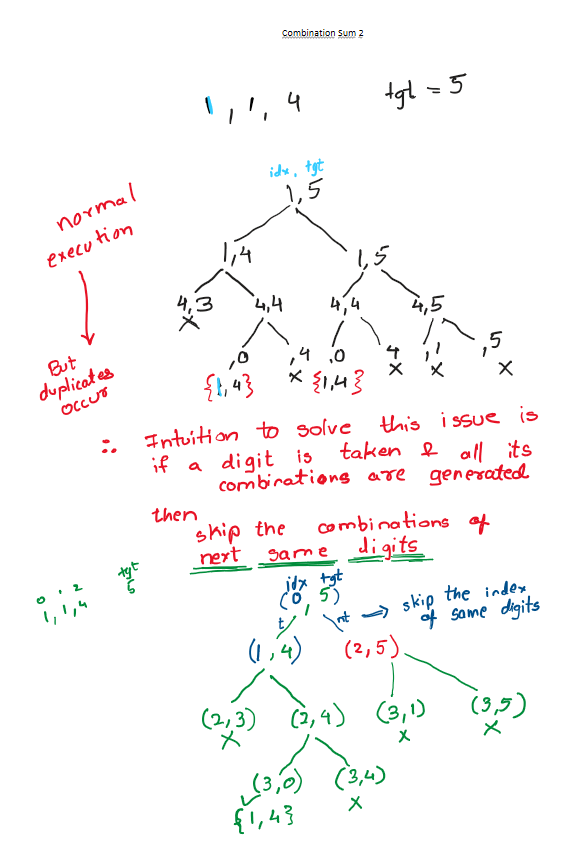 Combination Sum 2
1, 1, 4
tgt = 5
idx, tgt
1,5
normal
execution
1,4 1,5
4,3 4,4 4,4 4,5
x
,0 ,4 ,0 4 ,1 ,5
But
duplicates
occur
{1,4} x {1,4} x x x
∴ Intuition to solve this issue is
if a digit is taken & all its
combinations are generated
then
skip the combinations of
next same digits
0 1 2
1,1,4
tgt
5
idx tgt
(0, 5)
t nt ⇒ skip the index
of same digits
(1,4) (2,5)
(2,3) (2,4) (3,1) (3,5)
x x x
(3,0) (3,4)
✓ x
{1,4}